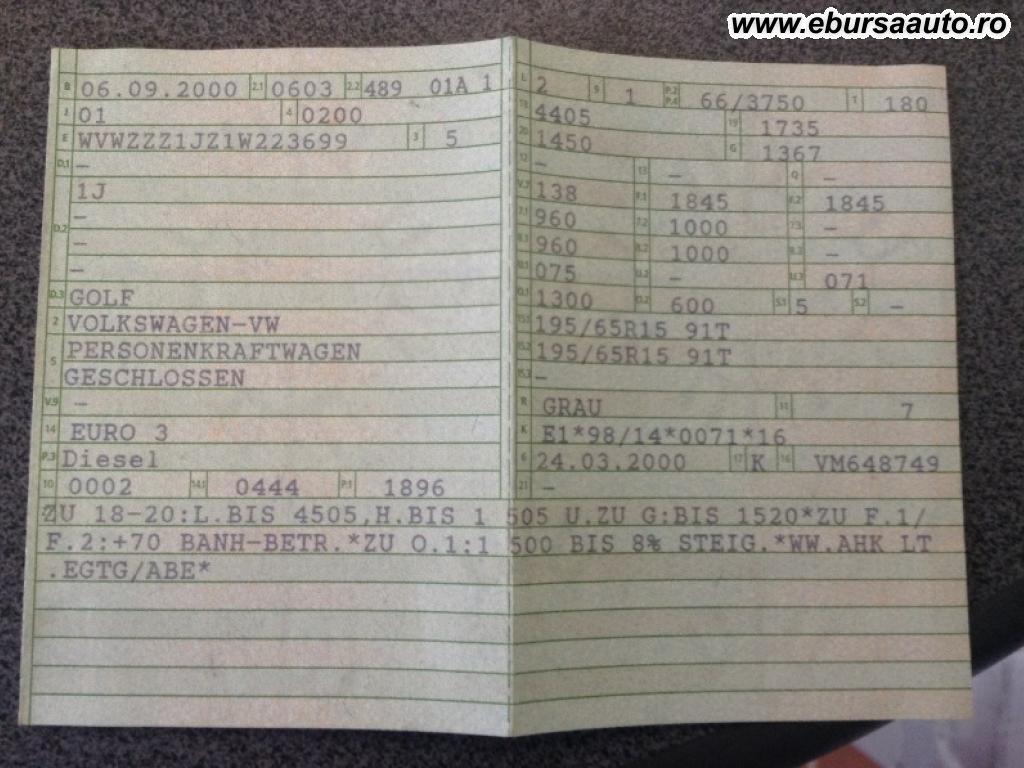 www.ebursaauto.ro
B 06.09.2000 2.1 0603 2.2 489 01A 1
J 01 4 0200
E WVWZZZ1JZ1W223699 3 5
D.1 –
1J
–
D.2 –
–
D.3 GOLF
2 VOLKSWAGEN-VW
5 PERSONENKRAFTWAGEN
GESCHLOSSEN
V.9 –
14 EURO 3
P.3 Diesel
10 0002 14.1 0444 P.1 1896
L 2 9 1 P.2 P.4 66/3750 T 180
18 4405 19 1735
20 1450 G 1367
12 – 13 – Q –
V.7 138 F.1 1845 F.2 1845
7.1 960 7.2 1000 7.3 –
8.1 960 8.2 1000 8.3 –
U.1 075 U.2 – U.3 071
O.1 1300 O.2 600 S.1 5 S.2 –
15.1 195/65R15 91T
15.2 195/65R15 91T
15.3 –
R GRAU 11 7
K E1*98/14*0071*16
6 24.03.2000 17 K 16 VM648749
21 –
ZU 18-20:L.BIS 4505,H.BIS 1 505 U.ZU G:BIS 1520*ZU F.1/
F.2:+70 BANH-BETR.*ZU O.1:1 500 BIS 8% STEIG.*WW.AHK LT
.EGTG/ABE*